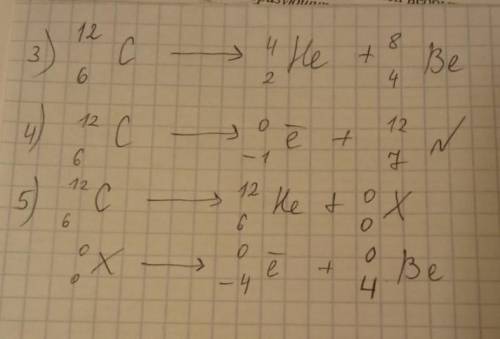 3) ¹²₆C → ⁴₂He + ⁸₄Be
4) ¹²₆C → ⁰₋₁ē + ¹²₇N
5) ¹²₆C → ¹²₆He + ⁰₀X
⁰₀X → ⁰₋₄ē + ⁰₄Be